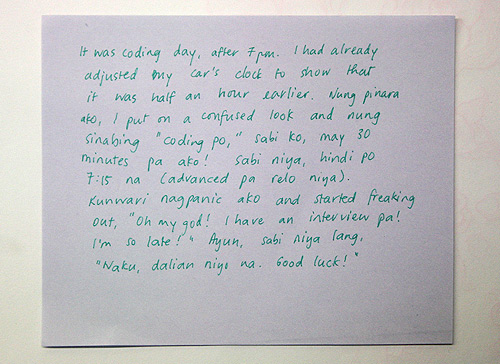 It was coding day, after 7pm. I had already
adjusted my car's clock to show that
it was half an hour earlier. Nung pinara
ako, I put on a confused look and nung
sinabing "coding po," sabi ko, may 30
minutes pa ako! Sabi niya, hindi po
7:15 na (advanced pa relo niya).
Kunwari nagpanic ako and started freaking
out, "Oh my god! I have an interview pa!
I'm so late!" Ayun, sabi niya lang,
"Naku, dalian niyo na. Good luck!"